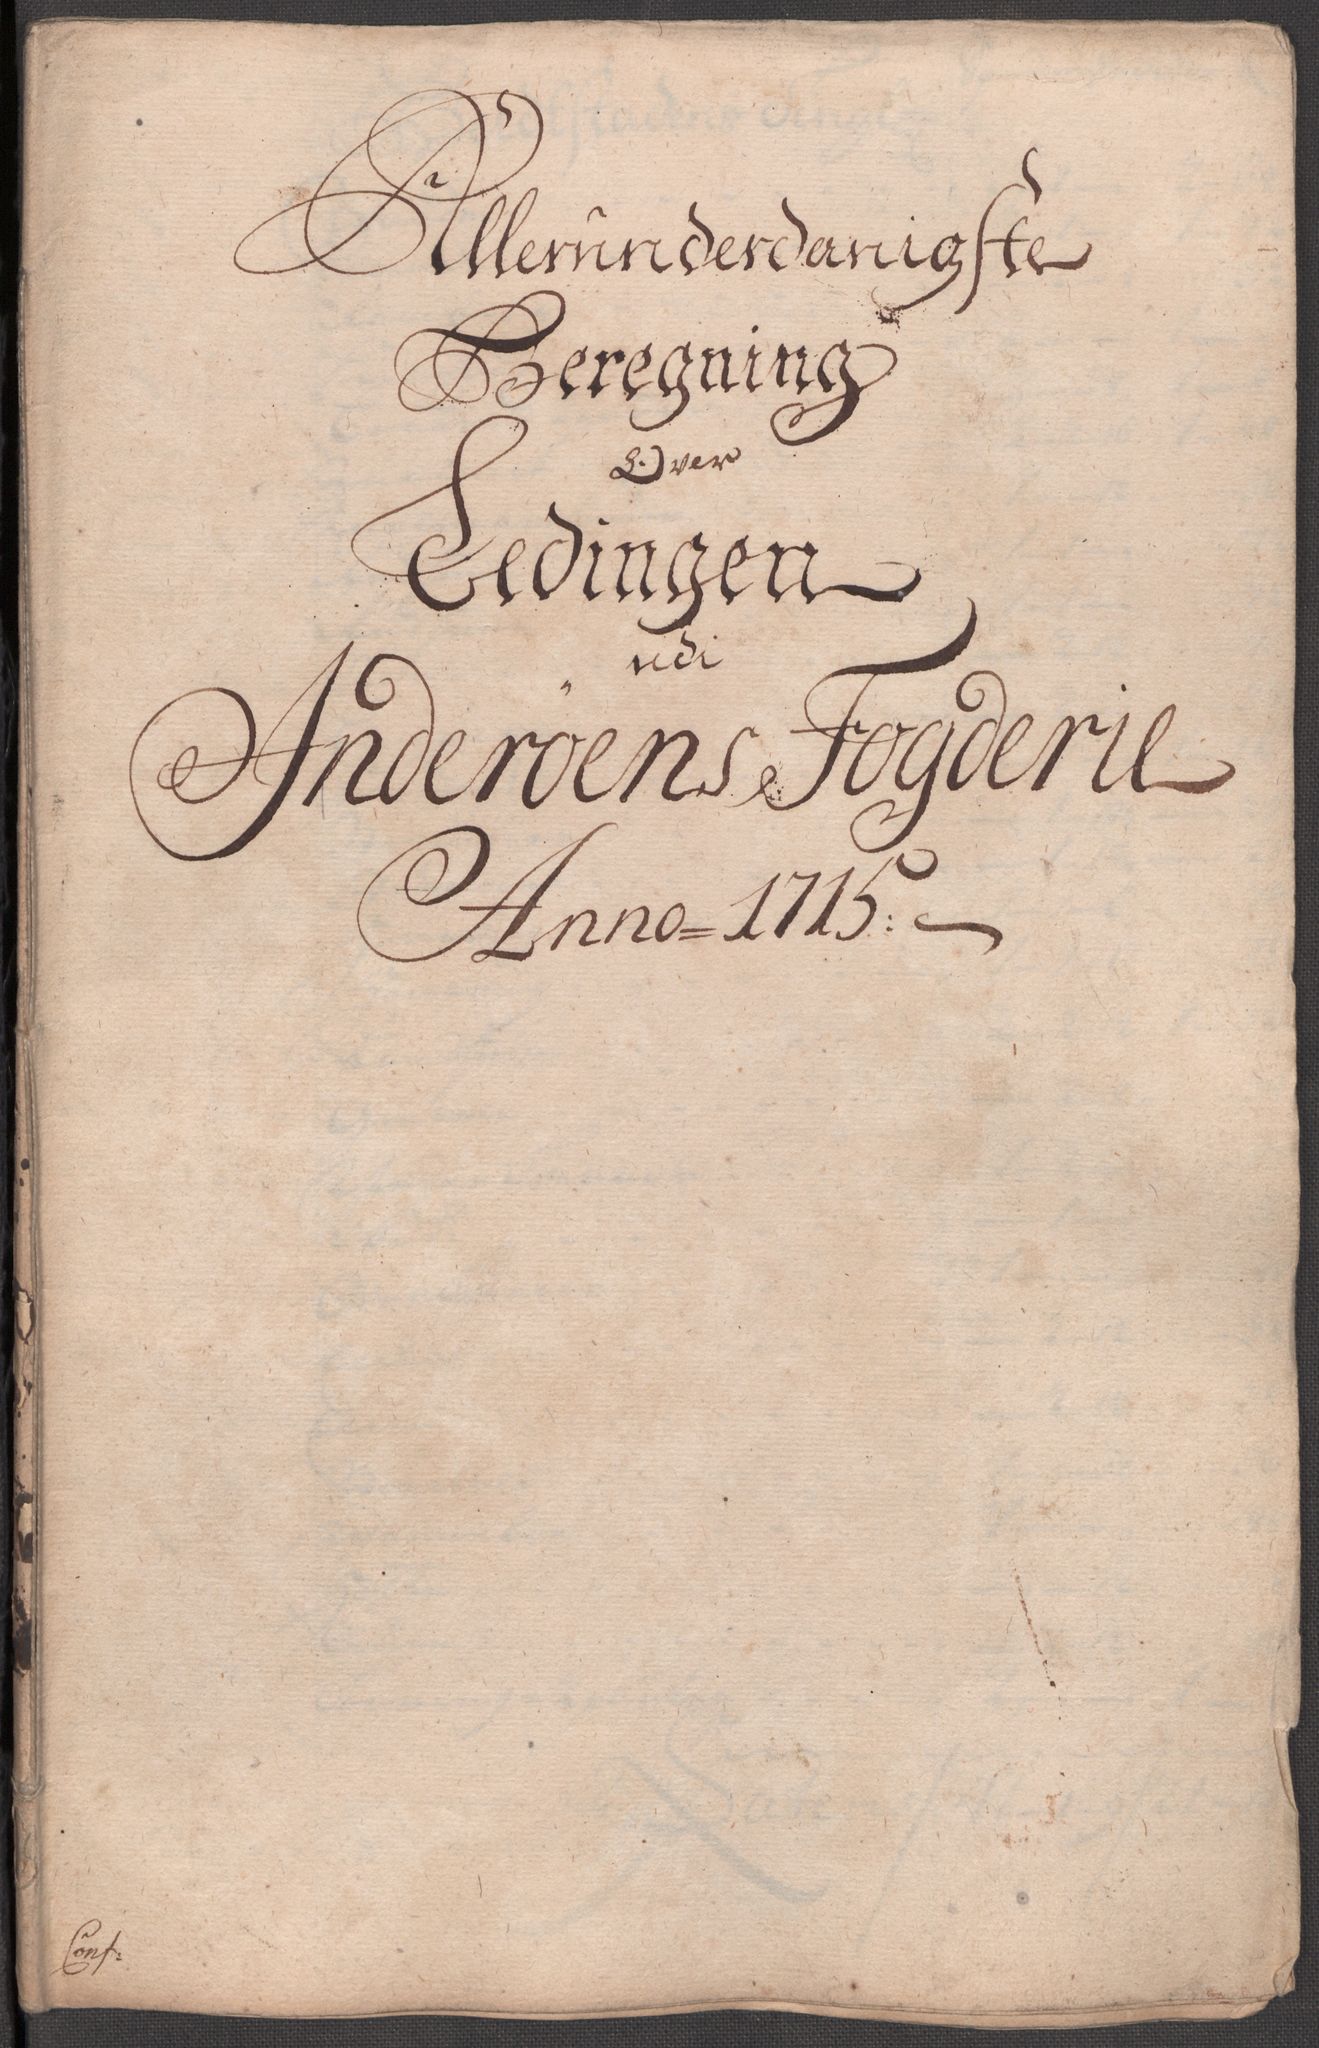 Allerûnderdanigste
Beregning
Over
Ledingen
udi
Inderöens Fogderie
Anno = 1715:
Conf: